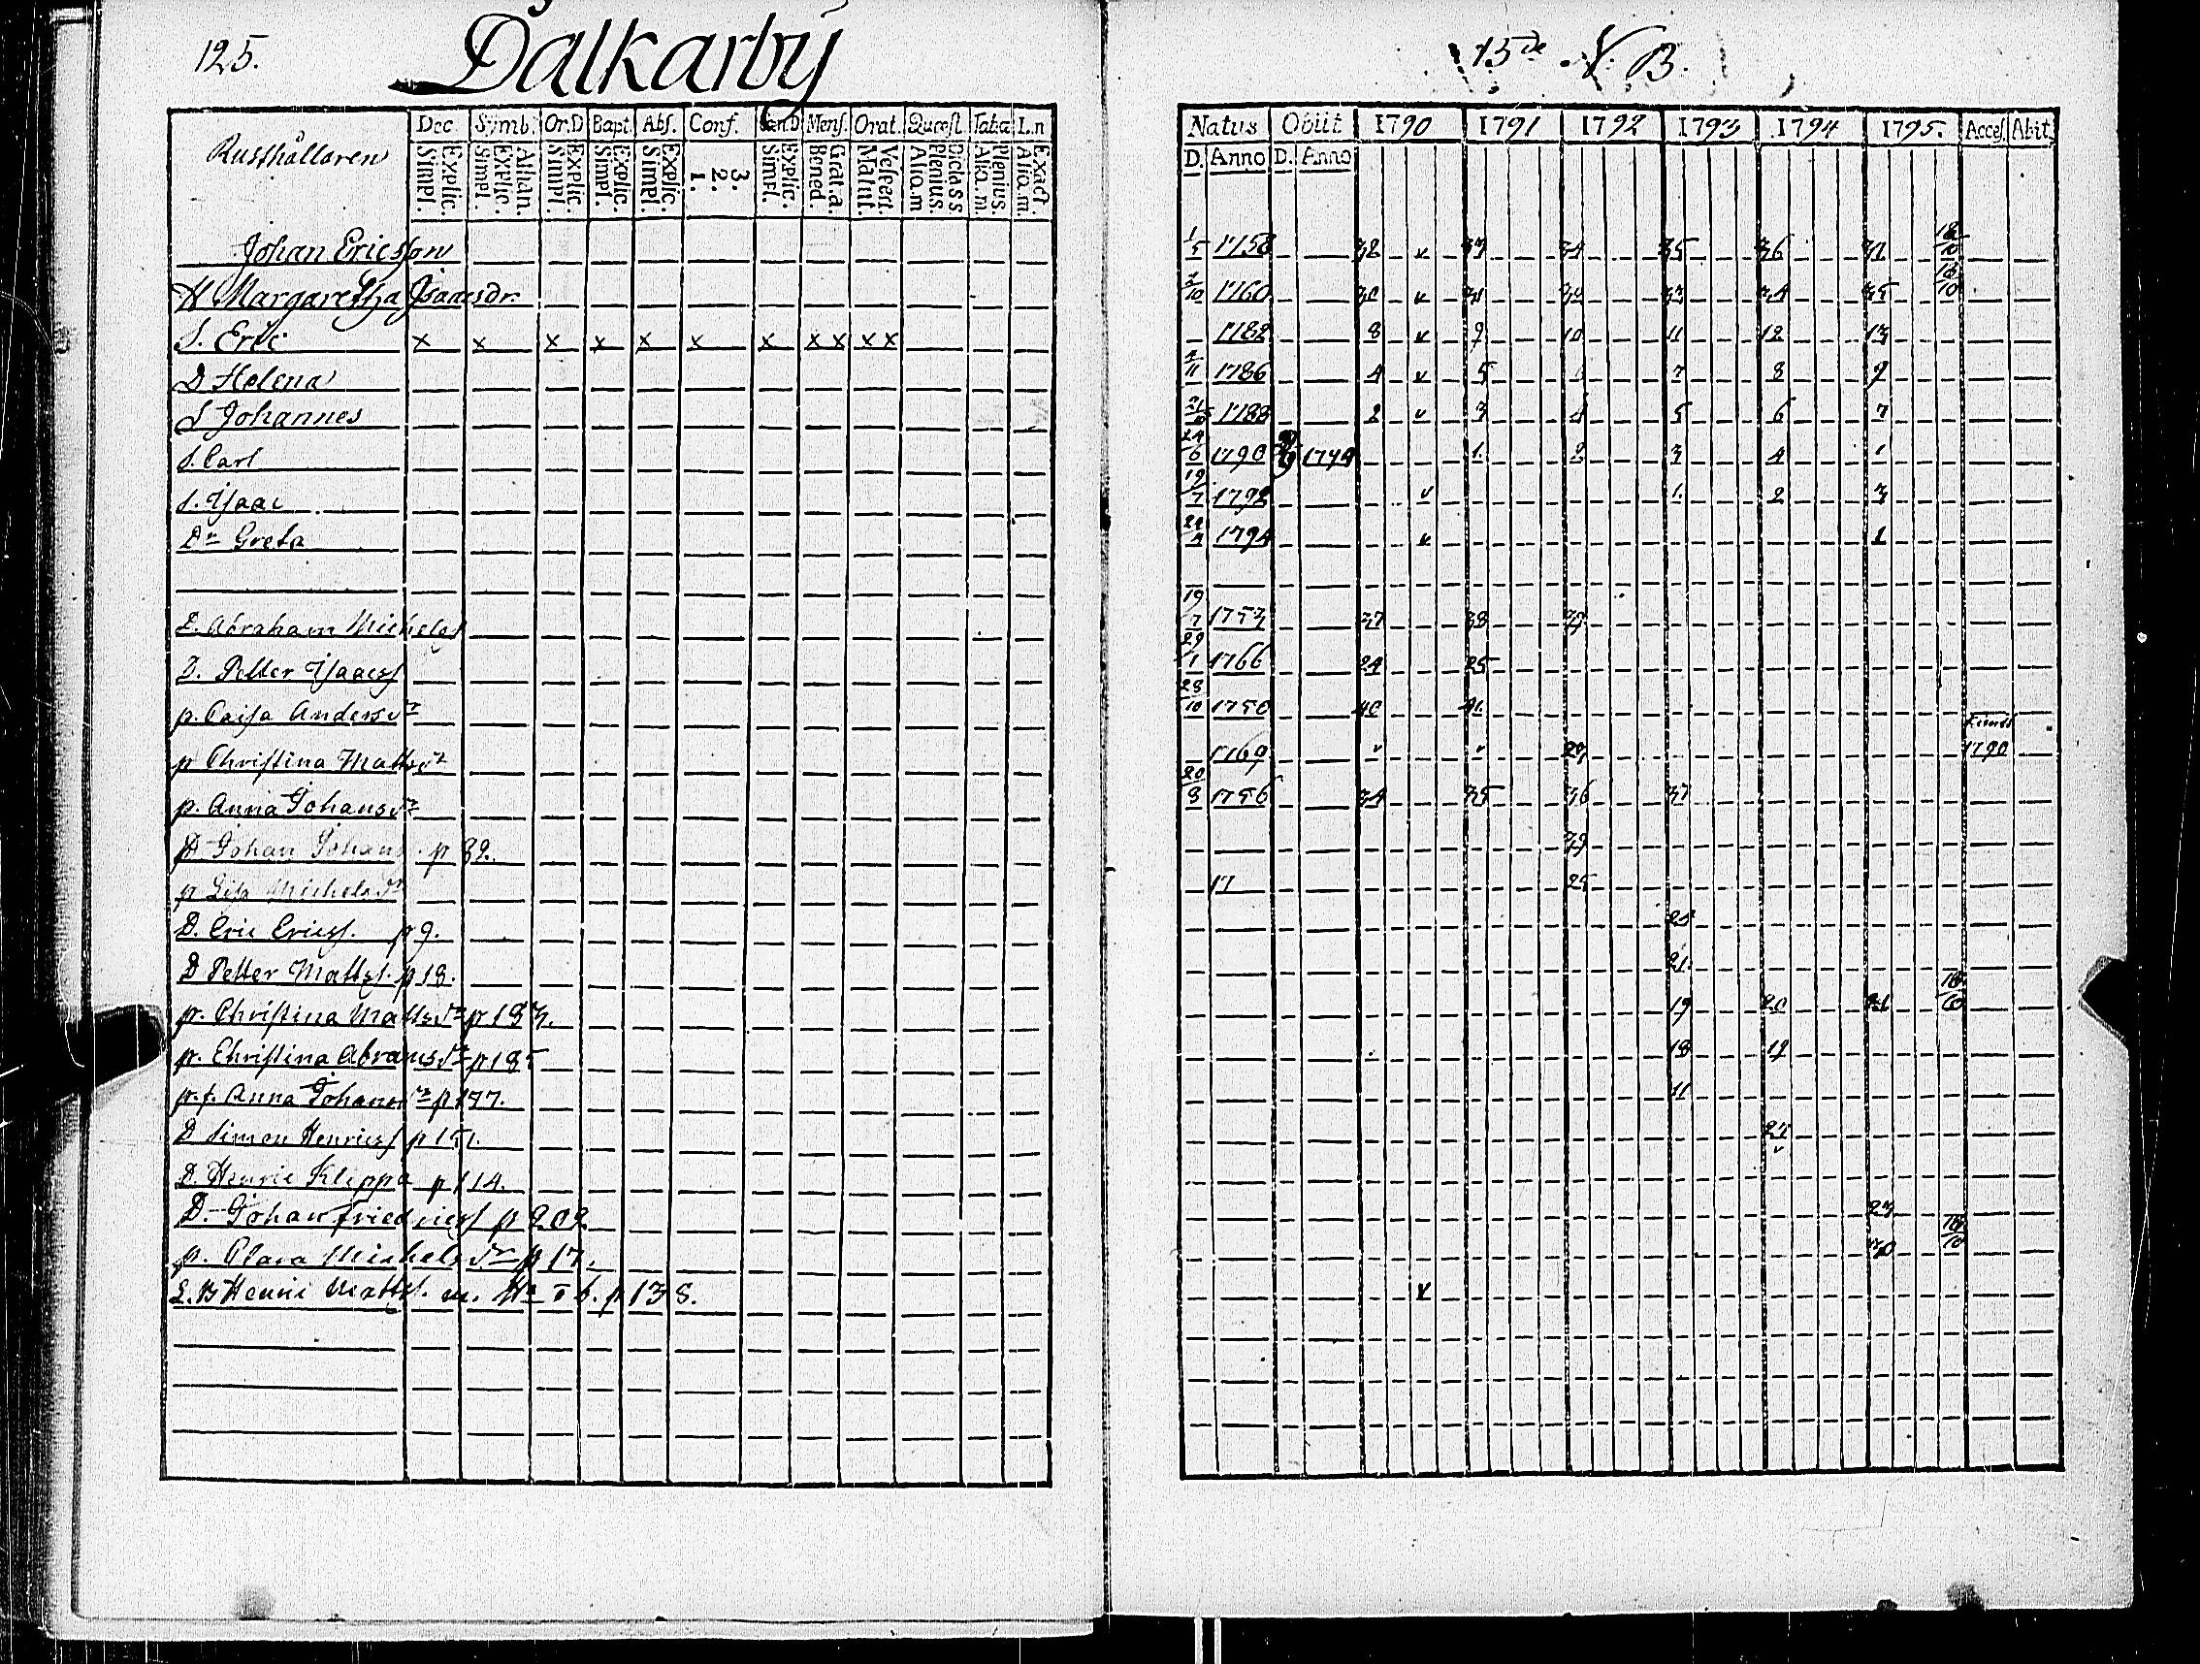 125. Dalkarby
Rusthållaren Dec. Symb. Or.D Bapt. Abs. Conf. Cen.D Mens. Orat. Quæst. Taba L.n
Simpl. Explic. Simpl. Explic. Athan. Simpl. Explic. Simpl. Explic. Simpl. Explic. 1. 2. 3. Simpl. Explic. Bened. Grat.a. Matut. Vespert. Aliq.m Plenius. Aliq.m. Plenius. Aliq.m. Exact.
Johan Ericsson
H Margaretha Isaacsdr.
S. Eric x x x x x x x x x x x
D Helena
S Johannes
S. Carl
S. Isaac
Dr Greta
D. Abraham Michelss
D. Petter Isaacss
p. Caisa Andersdr
p Christina Mattsdr
p. Anna Johansdr
D Johan Johans p 32.
p Lisa Michelsdr
D. Eric Ericss. p 9.
D Petter Mattss. p 18.
p. Christina Mattsdr p 183.
p. Christina Abramsdr p 185
p. f. Anna Johansdr p 177.
D Simon Henricss p 151.
D. Henric Klippa p 114.
D. Johan Friedricss p 202
p. Clara Michelsdr p 17.
Henric Mattss. m. H p 138.
15de N B.
Natus Obiit 1790 1791 1792 1793 1794 1795. Acces. Abit
D. Anno D. Anno
1/5 1758 32 v 33 34 35 36 37 18/10
2/10 1760 30 v 31 32 33 34 35 18/10
1782 8 v 9 10 11 12 13
2/11 1786 4 v 5 7 8 9
1788 2 v 3 4 5 6 7
24/6 1790 1794 1. 2 3 4
19/7 1792 v 1. 2 3
1794 v 1
19/7 1753 37 38 39
29/1 1766 24 25
28/10 1750 40 41.
1769 v v 23 1790
20/8 1756 34 35 36 37
39
17 25
25
21.
19 20 21 18/10
18 19
11
25
v
23
30 18/10
v